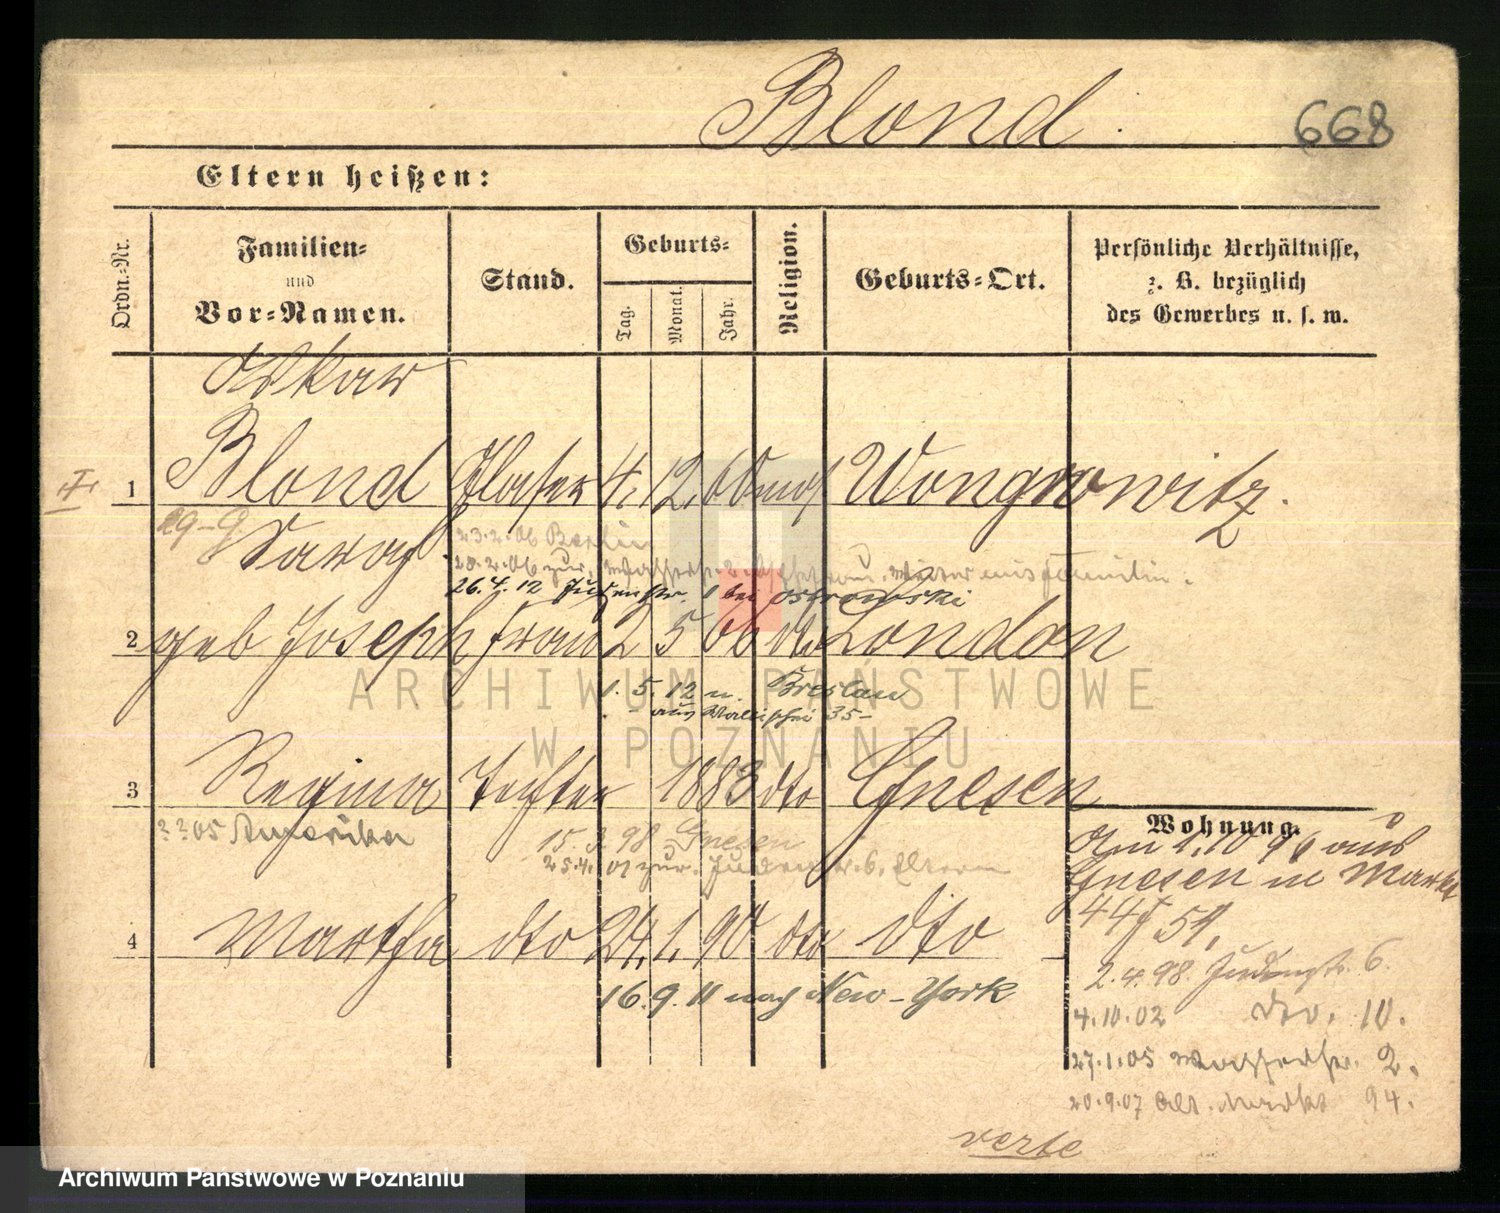 Blond.
668
Eltern heißen:
Ordn.-Nr.
Familien-
und
Vor-Namen.
Stand.
Geburts-
Tag.
Monat.
Jahr.
Religion.
Geburts-Ort.
Persönliche Verhältnisse,
z. B. bezüglich
des Gewerbes u. s. w.
Oskar
1 Blond Glaser 4. 12. 60 mos Wongrowitz.
29-9.
Sarah
23.2.06 Berlin
28.2.06 zur.
26.4.12 Judenstr. 1 bei Ostrowski
2 geb Joseph Frau 2 5 66 dto London
1. 5. 12 n. Breslau
aus Wallischei 35-
3 Regina Tochter 1883 dto Gnesen
? ? 05 Amerika
15.3.98 Gnesen
25.4.01 zur. Judenstr. 6. Eltern
4 Martha dto 24. 1. 90 dto dto
16.9.11 nach New-York
Wohnung.
Am 1.10 96 aus
Gnesen n Markt
44/51.
2.4.98. Judenstr. 6.
4.10.02 dto. 10.
27.1.05 Wasserstr. 2.
20.9.07 Alt. Markt 94.
verte
ARCHIWUM PAŃSTWOWE
W POZNANIU
Archiwum Państwowe w Poznaniu